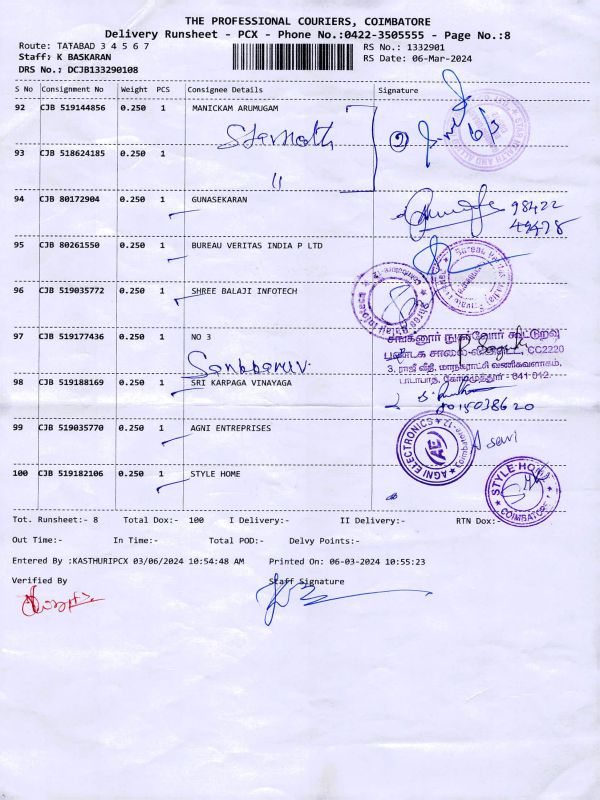 THE PROFESSIONAL COURIERS, COIMBATORE
Delivery Runsheet - PCX - Phone No.:0422-3505555 - Page No.:8
Route: TATABAD 3 4 5 6 7
RS No.: 1332901
Staff: K BASKARAN
RS Date: 06-Mar-2024
DRS No.: DCJB133290108
S No Consignment No Weight PCS Consignee Details Signature
92 CJB 519144856 0.250 1 MANICKAM ARUMUGAM
② 6/3
93 CJB 518624185 0.250 1
"
94 CJB 80172904 0.250 1 GUNASEKARAN
98422
49478
95 CJB 80261550 0.250 1 BUREAU VERITAS INDIA P LTD
96 CJB 519035772 0.250 1 SHREE BALAJI INFOTECH
97 CJB 519177436 0.250 1 NO 3
CC2220
3, ராஜி வீதி, மாநகராட்சி வணிகவளாகம்,
டாடாபாத், கோயமுத்தூர் - 641 012.
98 CJB 519188169 0.250 1 SRI KARPAGA VINAYAGA
8015038620
99 CJB 519035770 0.250 1 AGNI ENTREPRISES
AGNI ELECTRONICS
AE
Coimbatore-12
100 CJB 519182106 0.250 1 STYLE HOME
STYLE HOME
COIMBATORE
Tot. Runsheet:- 8 Total Dox:- 100 I Delivery:- II Delivery:- RTN Dox:-
Out Time:- In Time:- Total POD:- Delvy Points:-
Entered By :KASTHURIPCX 03/06/2024 10:54:48 AM Printed On: 06-03-2024 10:55:23
Verified By Staff Signature